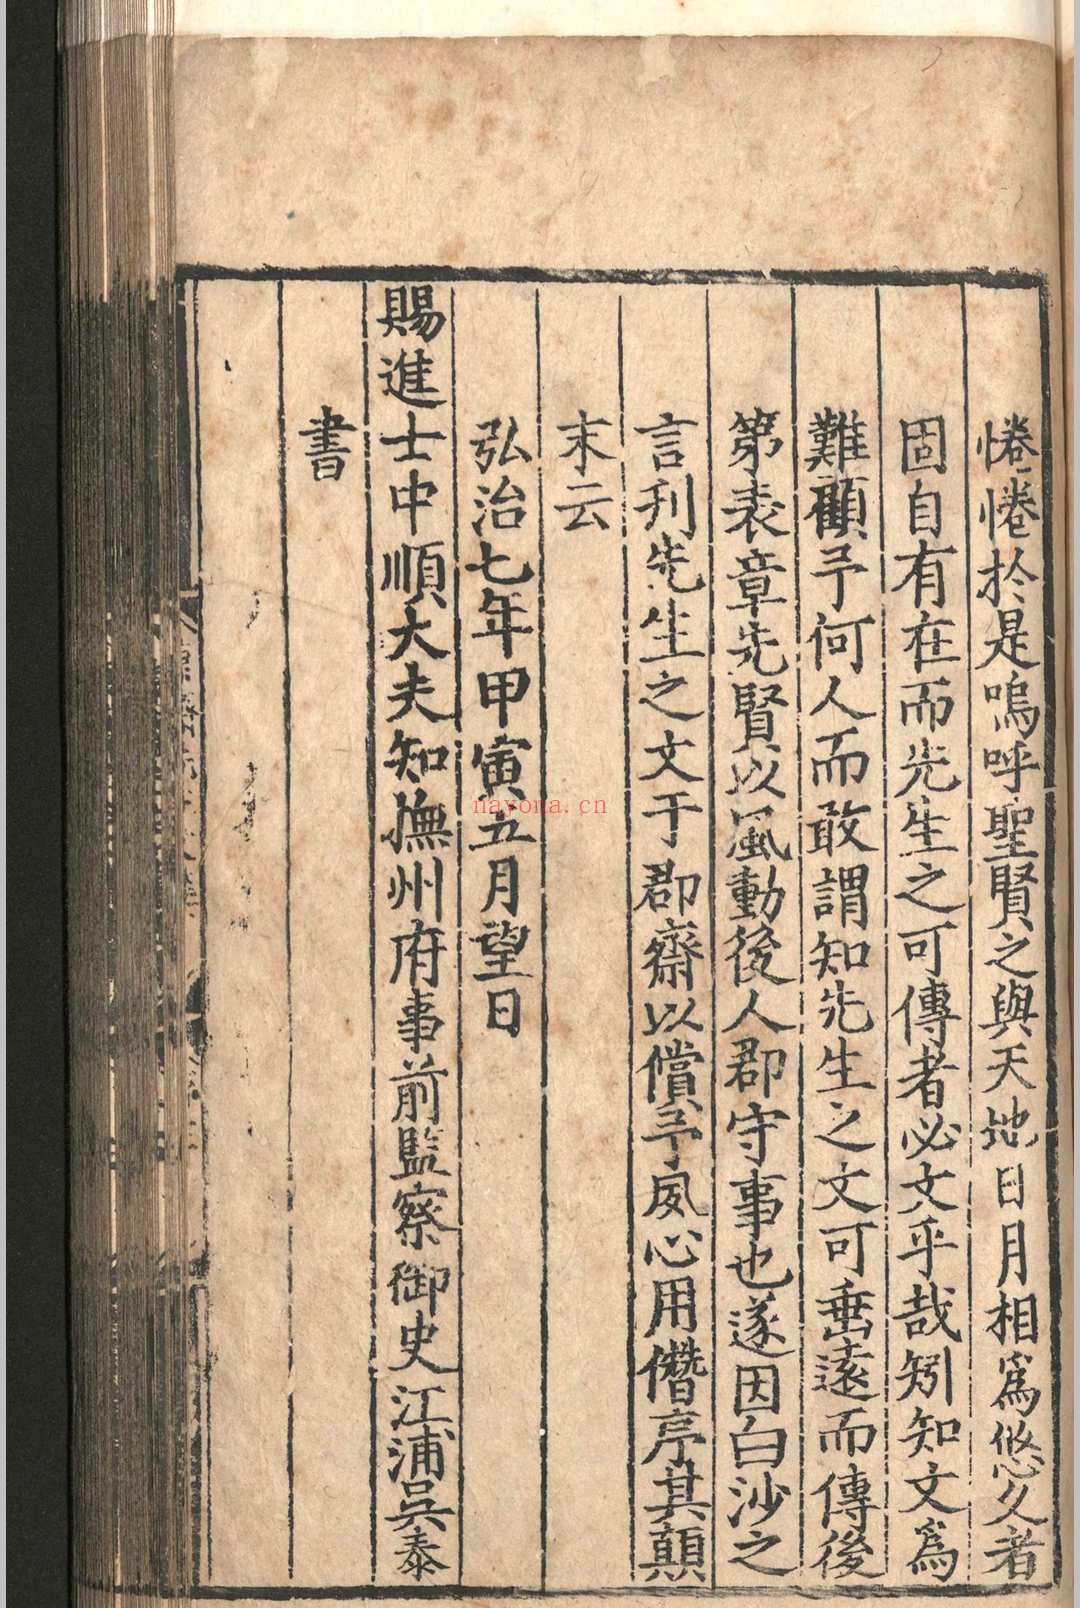 惓惓於是嗚呼聖賢之與天地日月相為悠久者
固自有在而先生之可傳者必文乎哉矧知文為
難顧予何人而敢謂知先生之文可垂遠而傳後
第表章先賢以風動後人郡守事也遂因白沙之
言刋先生之文于郡齋以償予夙心用僭序其顛
末云
弘治七年甲寅五月望日
賜進士中順大夫知撫州府事前監察御史江浦吳泰
書
nayona.cn